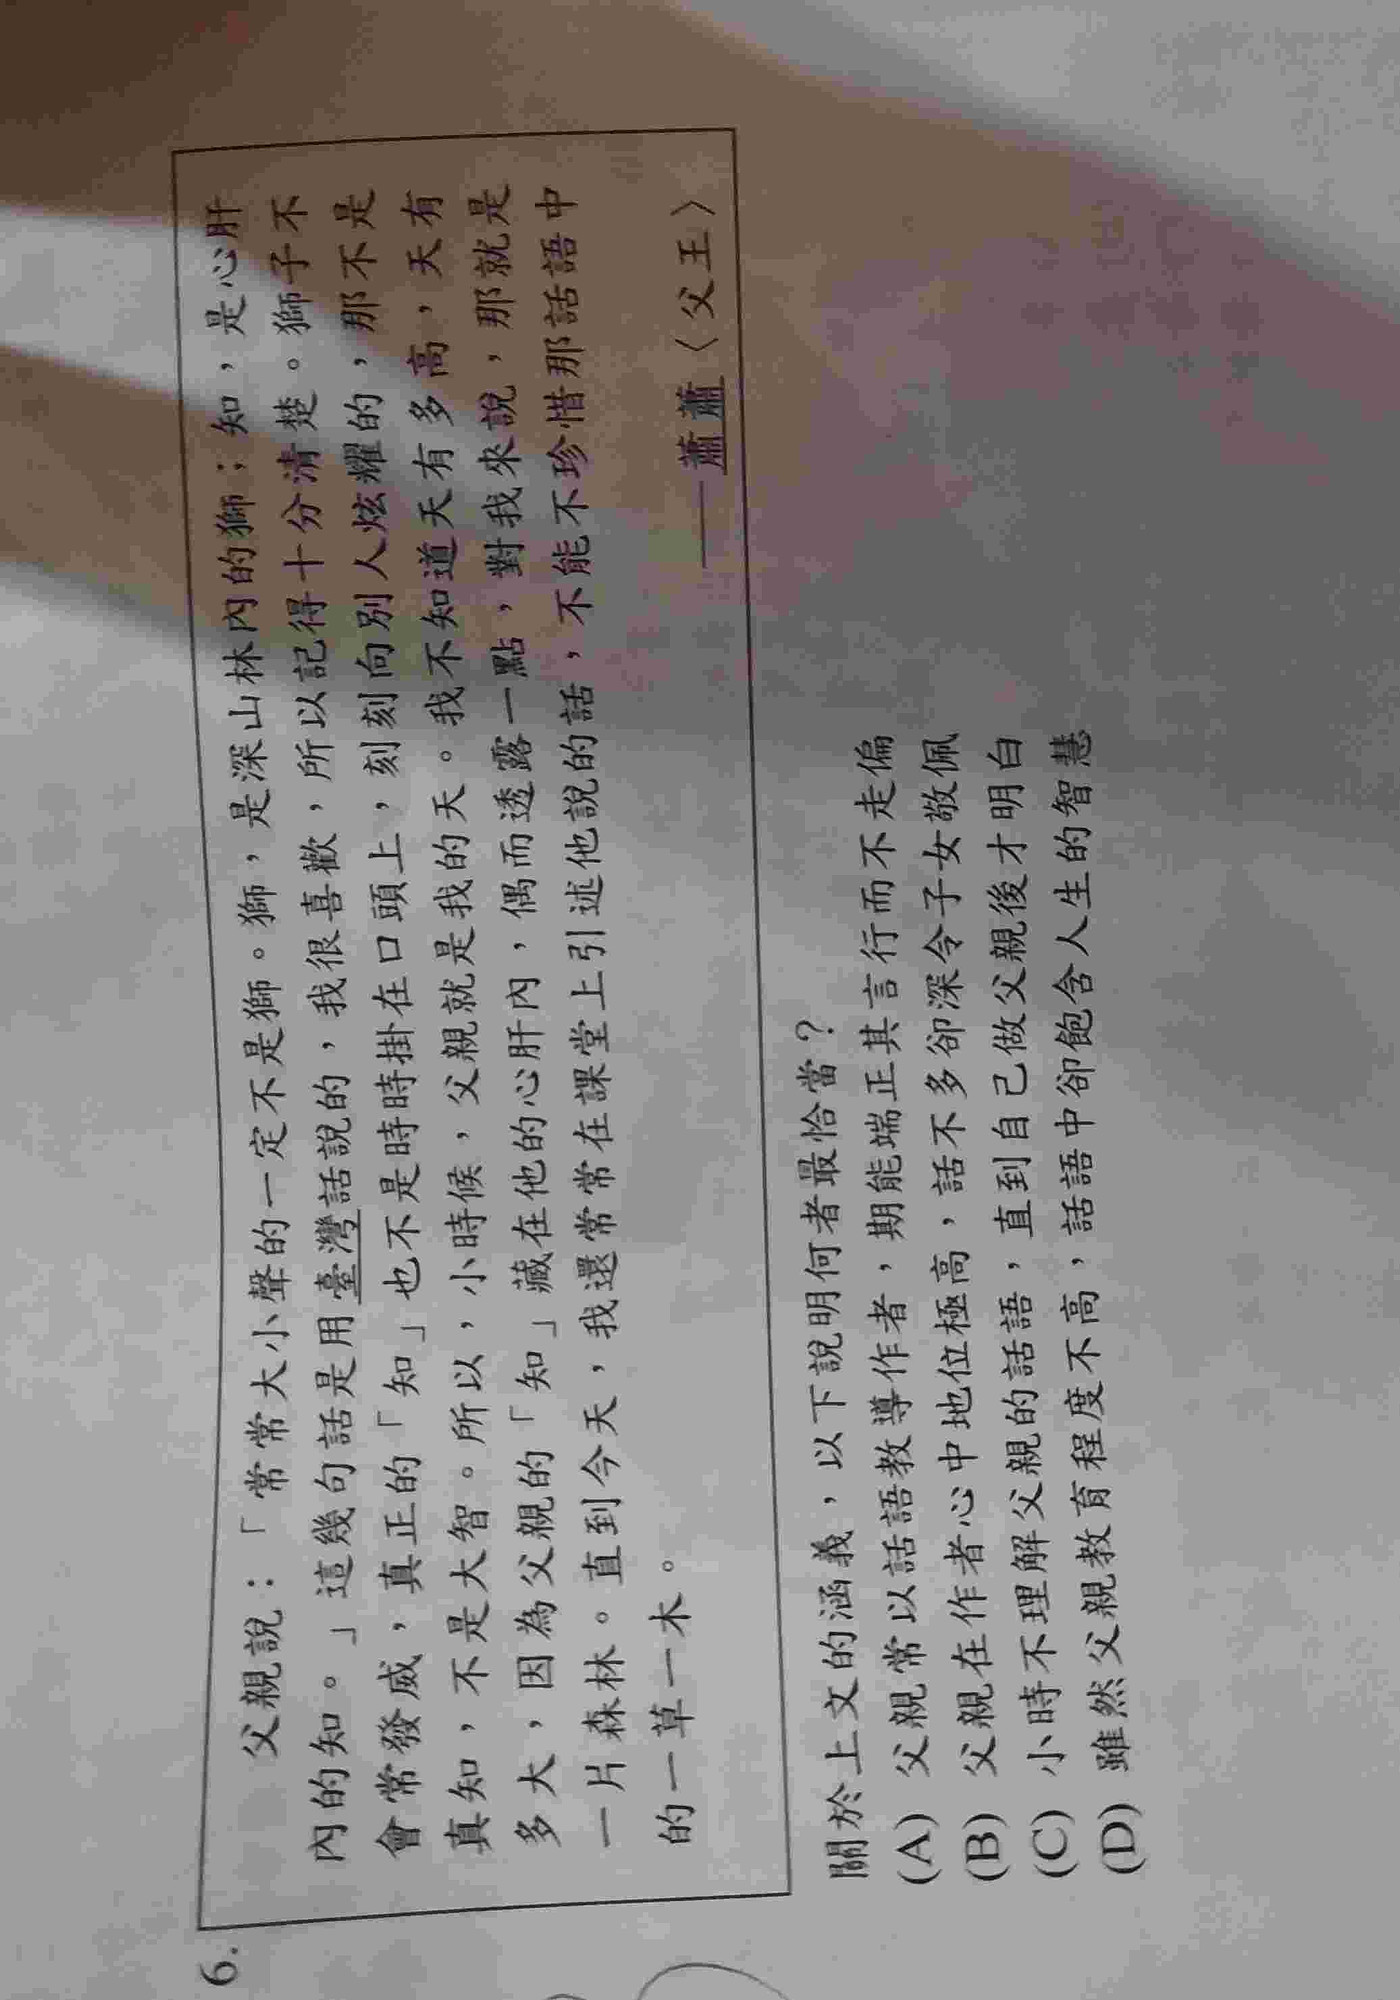 6.
父親說：「常常大小聲的一定不是獅。獅，是深山林內的獅；知，是心肝
內的知。」這幾句話是用臺灣話說的，我很喜歡，所以記得十分清楚。獅子不
會常發威，真正的「知」也不是時時掛在口頭上，刻刻向別人炫耀的，那不是
真知，不是大智。所以，小時候，父親就是我的天。我不知道天有多高，天有
多大，因為父親的「知」藏在他的心肝內，偶而透露一點，對我來說，那就是
一片森林。直到今天，我還常常在課堂上引述他說的話，不能不珍惜那話語中
的一草一木。
——蕭蕭〈父王〉
關於上文的涵義，以下說明何者最恰當？
(A) 父親常以話語教導作者，期能端正其言行而不走偏
(B) 父親在作者心中地位極高，話不多卻深令子女敬佩
(C) 小時不理解父親的話語，直到自己做父親後才明白
(D) 雖然父親教育程度不高，話語中卻飽含人生的智慧